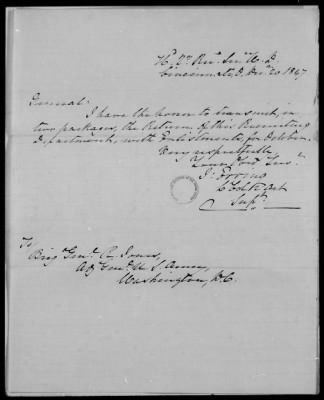 Hd. Qrs. Recg. Ser. W. D.
Cincinnati, O. Nov. 20 1847
General:
I have the honor to transmit, in
two packages, the Return of this Recruiting
Department, with Enlistments, for October.
Very respectfully,
Your Obt. Servt.
J. Erving
Col.
Supt.
To
Brig. Genl. R. Jones,
Adj. Genl. U. S. Army,
Washington, D.C.